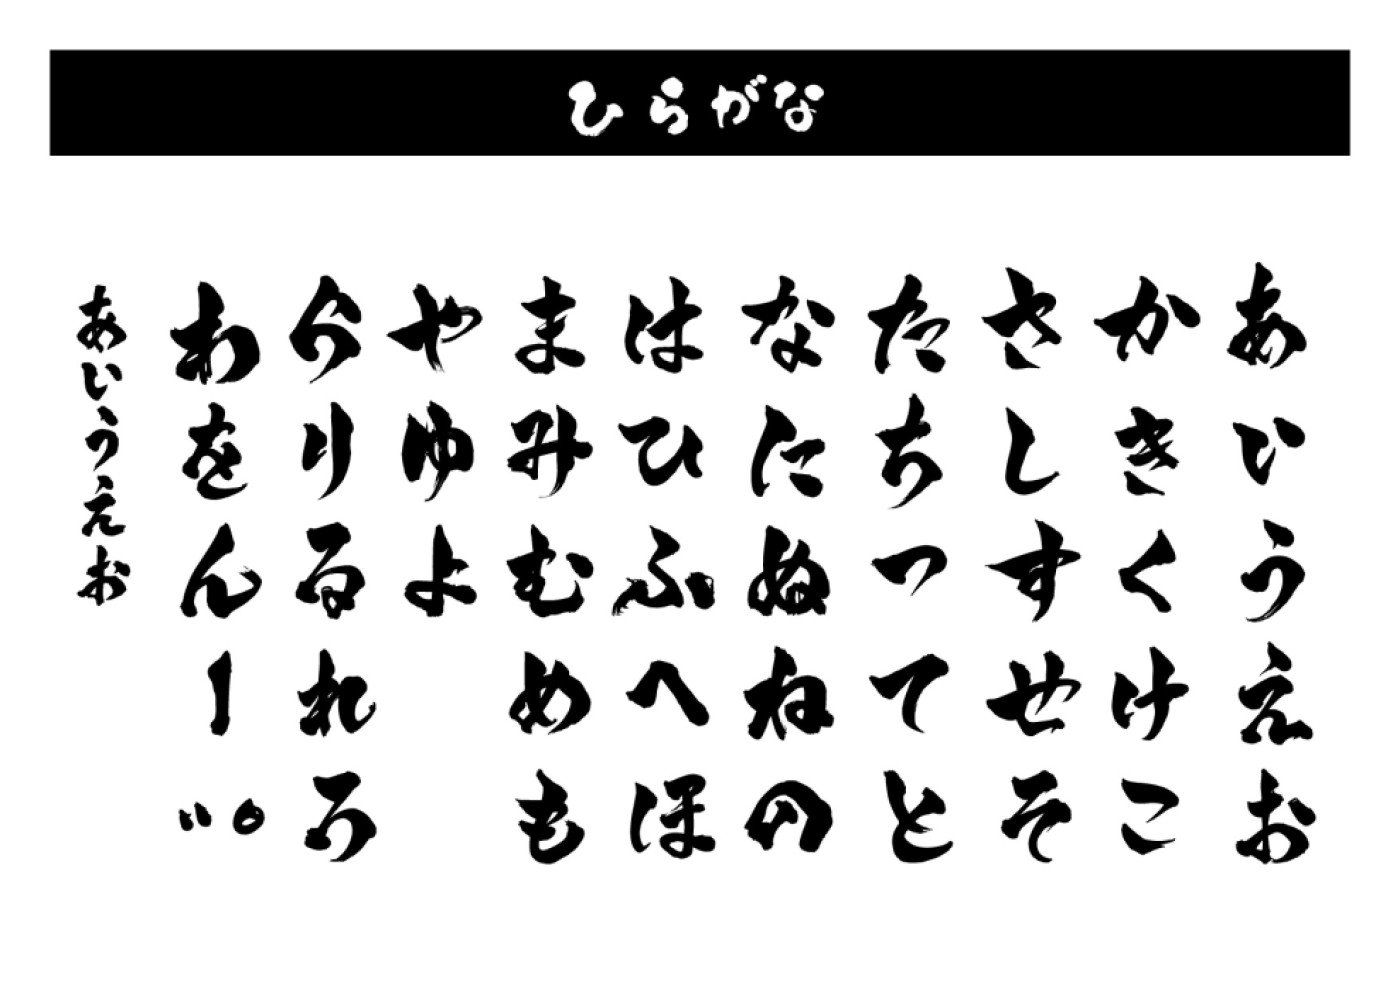 ひらがな
あいうえお
かきくけこ
さしすせそ
たちつてと
なにぬねの
はひふへほ
まみむめも
やゆよ
らりるれろ
わをんー゛゜
あいうえお